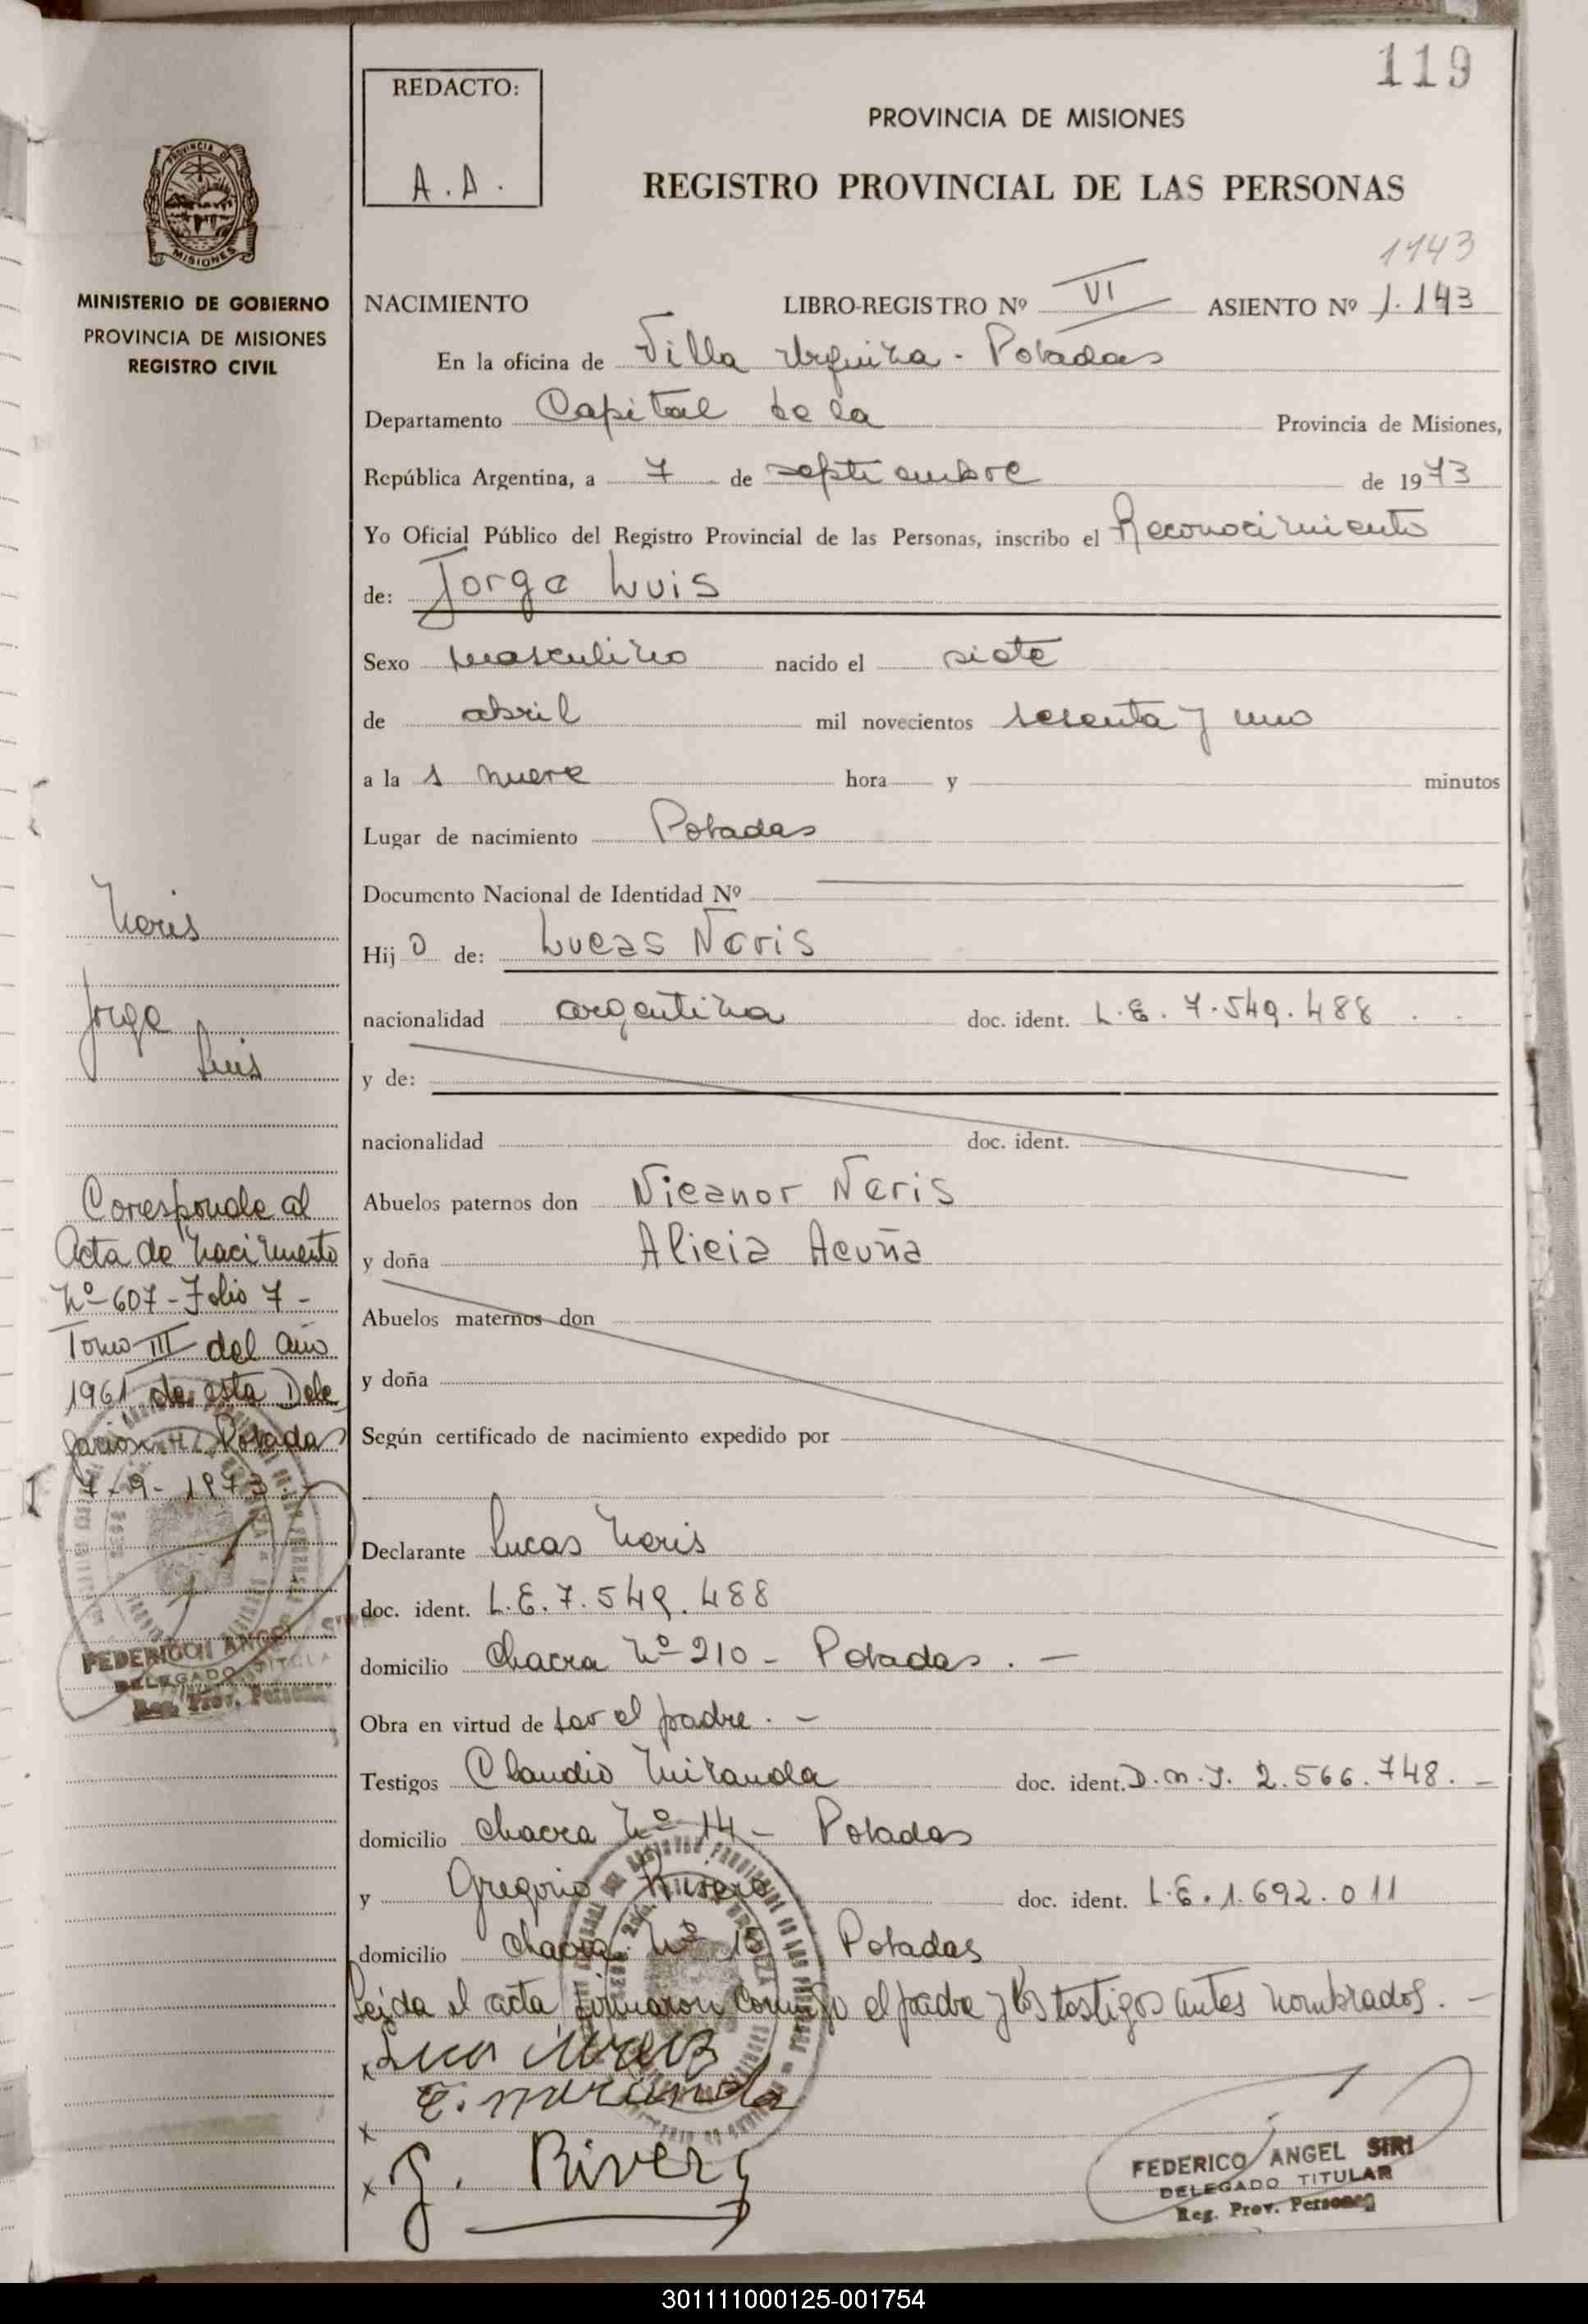 119
REDACTO:
A.A.
PROVINCIA DE MISIONES
REGISTRO PROVINCIAL DE LAS PERSONAS
PROVINCIA DE
MISIONES
MINISTERIO DE GOBIERNO
PROVINCIA DE MISIONES
REGISTRO CIVIL
1143
NACIMIENTO LIBRO-REGISTRO Nº VI ASIENTO Nº 1.143
En la oficina de Villa Urquiza - Posadas
Departamento Capital de la Provincia de Misiones,
República Argentina, a 7 de septiembre de 1973
Yo Oficial Público del Registro Provincial de las Personas, inscribo el Reconocimiento
de: Jorge Luis
Sexo masculino nacido el siete
de abril mil novecientos sesenta y uno
a la s nueve hora y minutos
Lugar de nacimiento Posadas
Documento Nacional de Identidad Nº
Hij o de: Lucas Neris
nacionalidad argentina doc. ident. L.E. 7.549.488
y de:
nacionalidad doc. ident.
Abuelos paternos don Nicanor Neris
y doña Alicia Acuña
Abuelos maternos don
y doña
Según certificado de nacimiento expedido por
Declarante Lucas Neris
doc. ident. L.E. 7.549.488
domicilio chacra Nº 210 - Posadas. -
Obra en virtud de ser el padre. -
Testigos Claudio Miranda doc. ident. D.N.I. 2.566.748. -
domicilio chacra Nº 14 - Posadas
y Gregorio Rivero doc. ident. L.E. 1.692.011
domicilio chacra Nº 15 Posadas
Leída el acta firmaron conmigo el padre y los testigos antes nombrados. -
x
x C. Miranda
x G. Rivero
FEDERICO ANGEL SIRI
DELEGADO TITULAR
Reg. Prov. Personas
Neris
Jorge
Luis
Coresponde al
Acta de Nacimiento
Nº 607 - Folio 7 -
Tomo III del año
1961 de esta Dele
gación - Posadas
7-9-1973. -
FEDERICO ANGEL SIRI
DELEGADO TITULAR
Reg. Prov. Personas
301111000125-001754